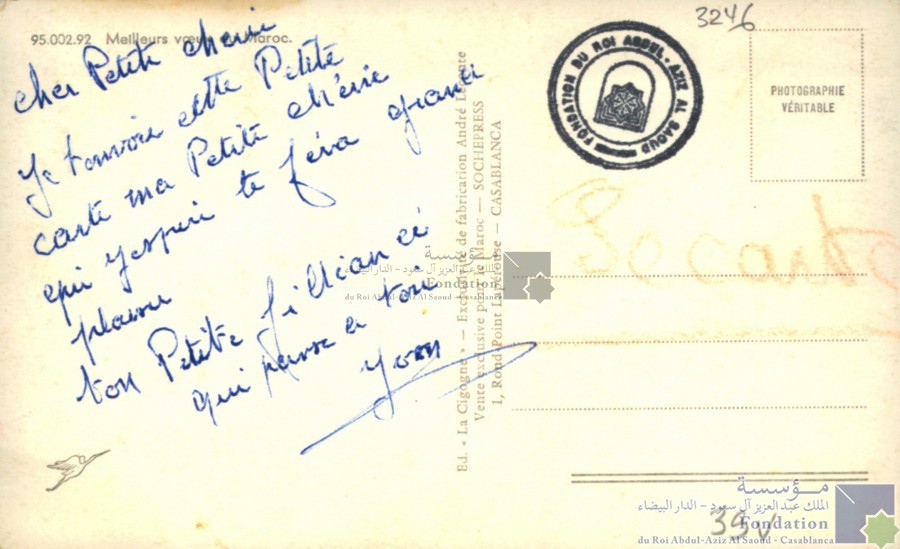 3246
95.002.92 Meilleurs vœux du Maroc.
cher Petite cherie
Je t'envoie cette Petite
carte ma Petite chérie
qui j'espere te fera grand
plaisir
ton Petite filliancé
qui panse a toi
yvon
Ed. « La Cigogne » – Exclusivité de fabrication André Leconte
Vente exclusive pour le Maroc – SOCHEPRESS
1, Rond-Point Lapérouse – CASABLANCA
FONDATION DU ROI ABDUL-AZIZ AL SAOUD
PHOTOGRAPHIE
VÉRITABLE
مؤسسة
الملك عبد العزيز آل سعود – الدار البيضاء
Fondation
du Roi Abdul-Aziz Al Saoud - Casablanca
39v
مؤسسة
الملك عبد العزيز آل سعود – الدار البيضاء
Fondation
du Roi Abdul-Aziz Al Saoud - Casablanca